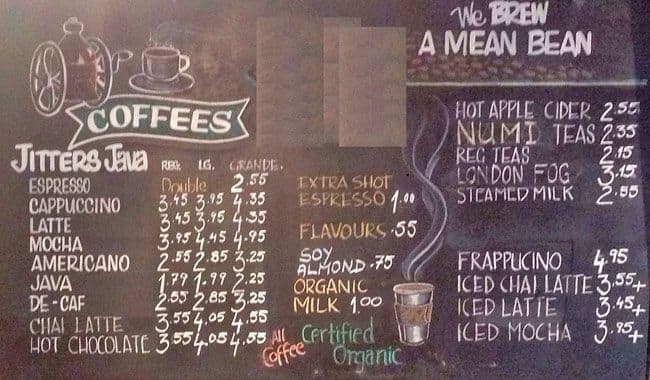 We BREW
A MEAN BEAN
COFFEES
JITTERS Java REG. LG. GRANDE.
ESPRESSO Double 2.55
CAPPUCCINO 3.45 3.95 4.35
LATTE 3.45 3.95 4.35
MOCHA 3.95 4.45 4.95
AMERICANO 2.55 2.85 3.25
JAVA 1.79 1.99 2.25
DE-CAF 2.55 2.85 3.25
CHAI LATTE 3.55 4.05 4.55
HOT CHOCOLATE 3.55 4.05 4.55
EXTRA SHOT
ESPRESSO 1.00
FLAVOURS .55
SOY
ALMOND .75
ORGANIC
MILK 1.00
All
Coffee
Certified
Organic
HOT APPLE CIDER 2.55
NUMI TEAS 2.35
REG TEAS 2.15
LONDON FOG 3.15
STEAMED MILK 2.55
FRAPPUCINO 4.95
ICED CHAI LATTE 3.55+
ICED LATTE 3.45+
ICED MOCHA 3.95+